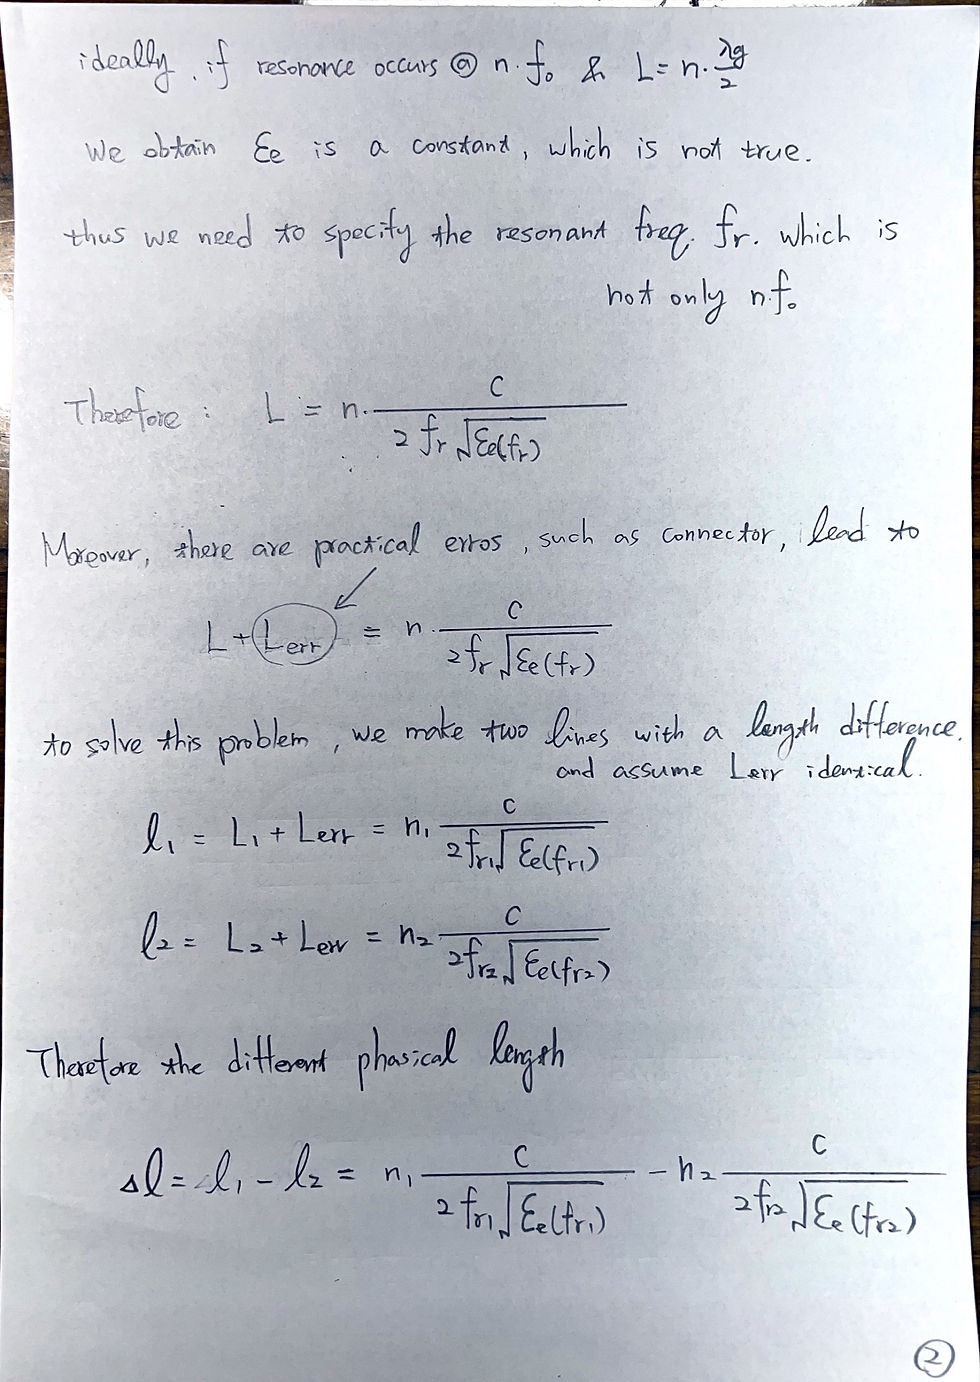 ideally, if resonance occurs @ n·f₀ & L = n·λg/2
We obtain εe is a constant, which is not true.
thus we need to specify the resonant freq. fr. which is
not only n·f₀
Therefore : L = n· C / 2 fr √εe(fr)
Moreover, there are practical erros, such as connector, lead to
L + Lerr = n· C / 2fr √εe(fr)
to solve this problem, we make two lines with a length difference.
and assume Lerr identical.
l₁ = L₁ + Lerr = n₁ C / 2fr₁ √εe(fr₁)
l₂ = L₂ + Lerr = n₂ C / 2fr₂ √εe(fr₂)
Therefore the different phasical length
Δl = l₁ - l₂ = n₁ C / 2 fr₁ √εe(fr₁) - n₂ C / 2fr₂ √εe(fr₂)
2